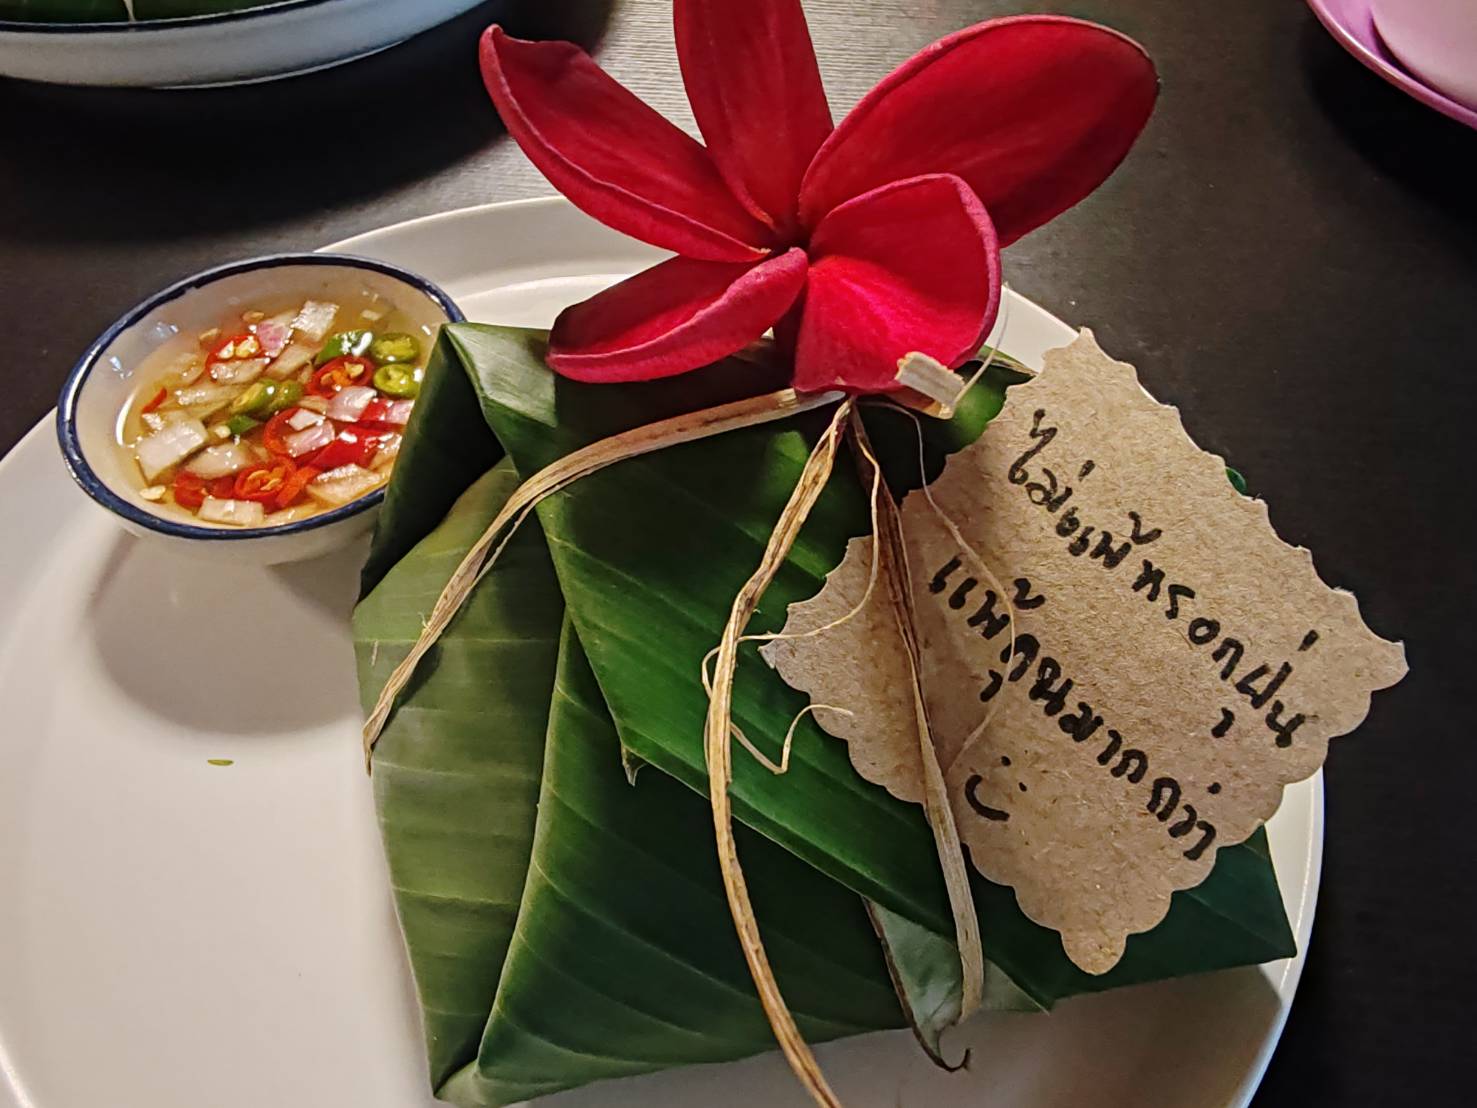 ไม่แพ้หรอกฝุ่น
แพ้คุณมากกว่า
:)